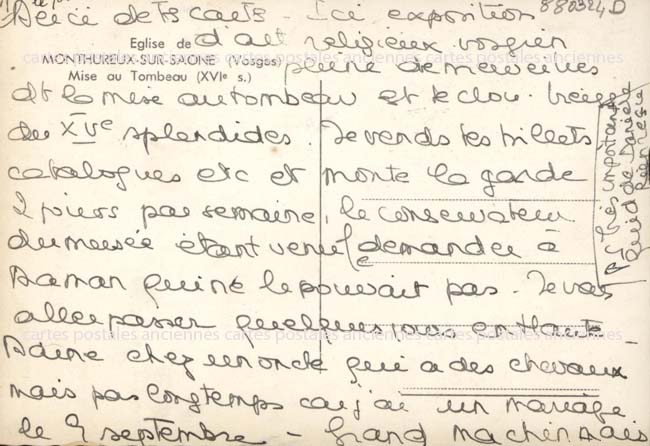 880324D
Merci de ts cartes - Ici exposition
d'art religieux vosgien
Eglise de
MONTHUREUX-SUR-SAONE (Vosges)
Mise au Tombeau (XVIe s.)
pleine de merveilles
dt la mise au tombeau est le clou.
du XVe splendides. Je vends les billets
catalogues etc et monte la garde
2 jours par semaine, le conservateur
du musée étant venu le demander à
Maman qui ne le pouvait pas. Je vais
aller passer quelques jours en Haute-
cartes postales anciennes cartes postales anciennes cartes postales anciennes
Saône chez un oncle qui a des chevaux
mais pas longtemps car j'ai un mariage
le 9 septembre - Grand machin mais
très important
quid de Danièle